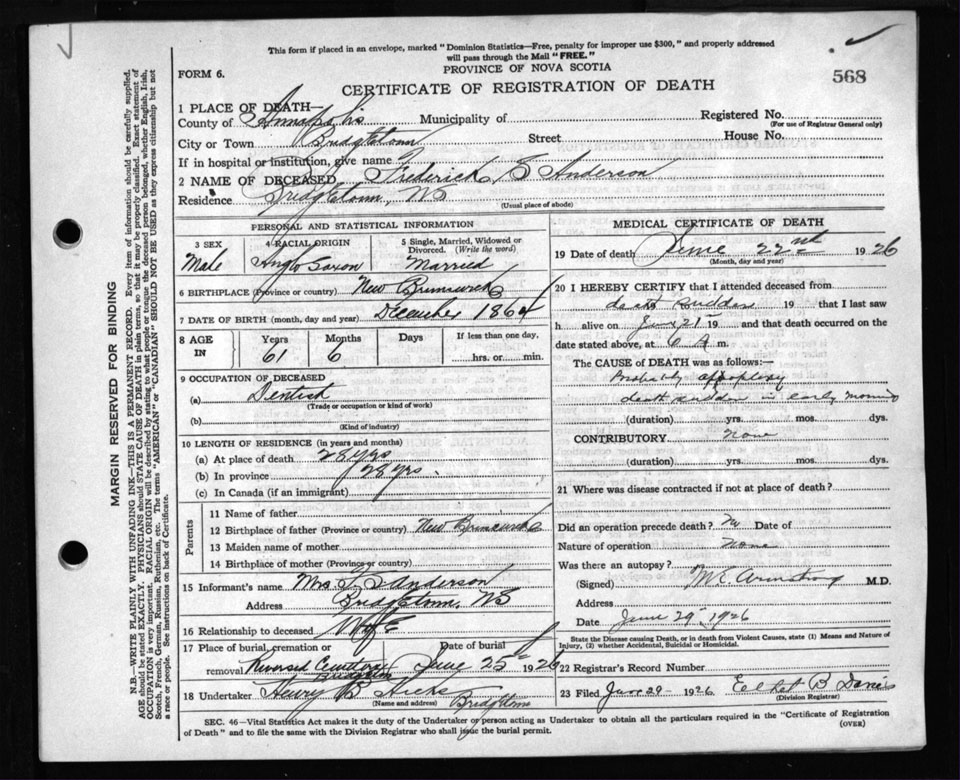 This form if placed in an envelope, marked "Dominion Statistics—Free, penalty for improper use $300," and properly addressed
will pass through the Mail "FREE."
PROVINCE OF NOVA SCOTIA
FORM 6.
568
CERTIFICATE OF REGISTRATION OF DEATH
1 PLACE OF DEATH—
County of Annapolis Municipality of Registered No.
(For use of Registrar General only)
City or Town Bridgetown Street House No.
If in hospital or institution, give name
2 NAME OF DECEASED Frederick S Anderson
Residence Bridgetown, NS
(Usual place of abode)
PERSONAL AND STATISTICAL INFORMATION
3 SEX 4 RACIAL ORIGIN 5 Single, Married, Widowed or Divorced. (Write the word)
Male Anglo Saxon Married
6 BIRTHPLACE (Province or country) New Brunswick
7 DATE OF BIRTH (month, day and year) December 1864
8 AGE IN Years Months Days If less than one day,
61 6 hrs. or min.
9 OCCUPATION OF DECEASED
(a) Dentist
(Trade or occupation or kind of work)
(b)
(Kind of industry)
10 LENGTH OF RESIDENCE (in years and months)
(a) At place of death 28 yrs
(b) In province 28 yrs.
(c) In Canada (if an immigrant)
Parents
11 Name of father
12 Birthplace of father (Province or country) New Brunswick
13 Maiden name of mother
14 Birthplace of mother (Province or Country)
15 Informant's name Mrs F S Anderson
Address Bridgetown, NS
16 Relationship to deceased Wife
17 Place of burial, cremation or removal Date of burial
Riverside Cemetery Bridgetown June 25th 1926
18 Undertaker Henry B Hicks
(Name and address) Bridgetown
MEDICAL CERTIFICATE OF DEATH
19 Date of death June 22nd 1926
(Month, day and year)
20 I HEREBY CERTIFY that I attended deceased from
death sudden 19 that I last saw
h alive on June 21st 19 and that death occurred on the
date stated above, at 6 A m.
The CAUSE of DEATH was as follows:—
Probably apoplexy
death sudden in early morning
(duration) yrs. mos. dys.
CONTRIBUTORY None
(duration) yrs. mos. dys.
21 Where was disease contracted if not at place of death?
Did an operation precede death? No Date of
Nature of operation None
Was there an autopsy?
(Signed) M E Armstrong M.D.
Address
Date June 29th 1926
State the Disease causing Death, or in death from Violent Causes, state (1) Means and Nature of
Injury, (2) whether Accidental, Suicidal or Homicidal.
22 Registrar's Record Number
23 Filed June 29 - 1926 B
(Division Registrar)
SEC. 46—Vital Statistics Act makes it the duty of the Undertaker or person acting as Undertaker to obtain all the particulars required in the "Certificate of Registration
of Death" and to file the same with the Division Registrar who shall issue the burial permit. (OVER)
MARGIN RESERVED FOR BINDING
N.B.—WRITE PLAINLY WITH UNFADING INK—THIS IS A PERMANENT RECORD. Every item of information should be carefully supplied.
AGE should be stated EXACTLY. PHYSICIANS should STATE CAUSE OF DEATH in plain terms, so that it may be properly classified. Exact statement of
OCCUPATION is very important. RACIAL ORIGIN will be described by stating to what people or tongue the deceased person belonged, whether English, Irish,
Scotch, French, German, Russian, Ruthenian, etc. The terms "AMERICAN" or "CANADIAN" SHOULD NOT BE USED as they express citizenship but not
a race or people. See instructions on back of Certificate.